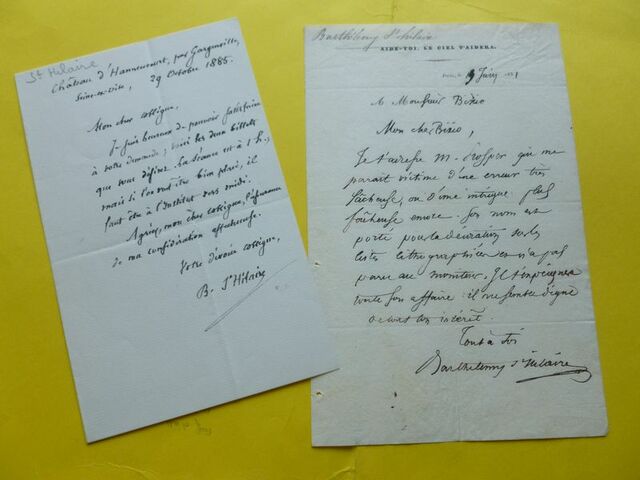 St Hilaire
Château d'Hannencourt, par Gargenville,
Seine-et-Oise, 29 Octobre 1885.
Mon cher collègue,
Je suis heureux de pouvoir satisfaire
à votre demande; voici les deux billets
que vous désirez. La séance est à 1 h.;
mais si l'on veut être bien placé, il
faut être à l'Institut vers midi.
Agréez, mon cher collègue, l'assurance
de ma considération affectueuse.
Votre dévoué collègue,
B. St Hilaire
Barthélemy St Hilaire
AIDE-TOI, LE CIEL T'AIDERA.
Paris, le 9 Juin 1831
A Monsieur Bixio
Mon cher Bixio,
Je t'adresse M. Prosper qui me
parait victime d'une erreur très
fâcheuse, ou d'une intrigue plus
fâcheuse encore. Son nom est
porté pour la décoration sur les
listes lithographiées et n'a pas
paru au moniteur. Il t'expliquera
toute son affaire: il me semble digne
de tout ton intérêt.
Tout à toi
Barthélemy St Hilaire